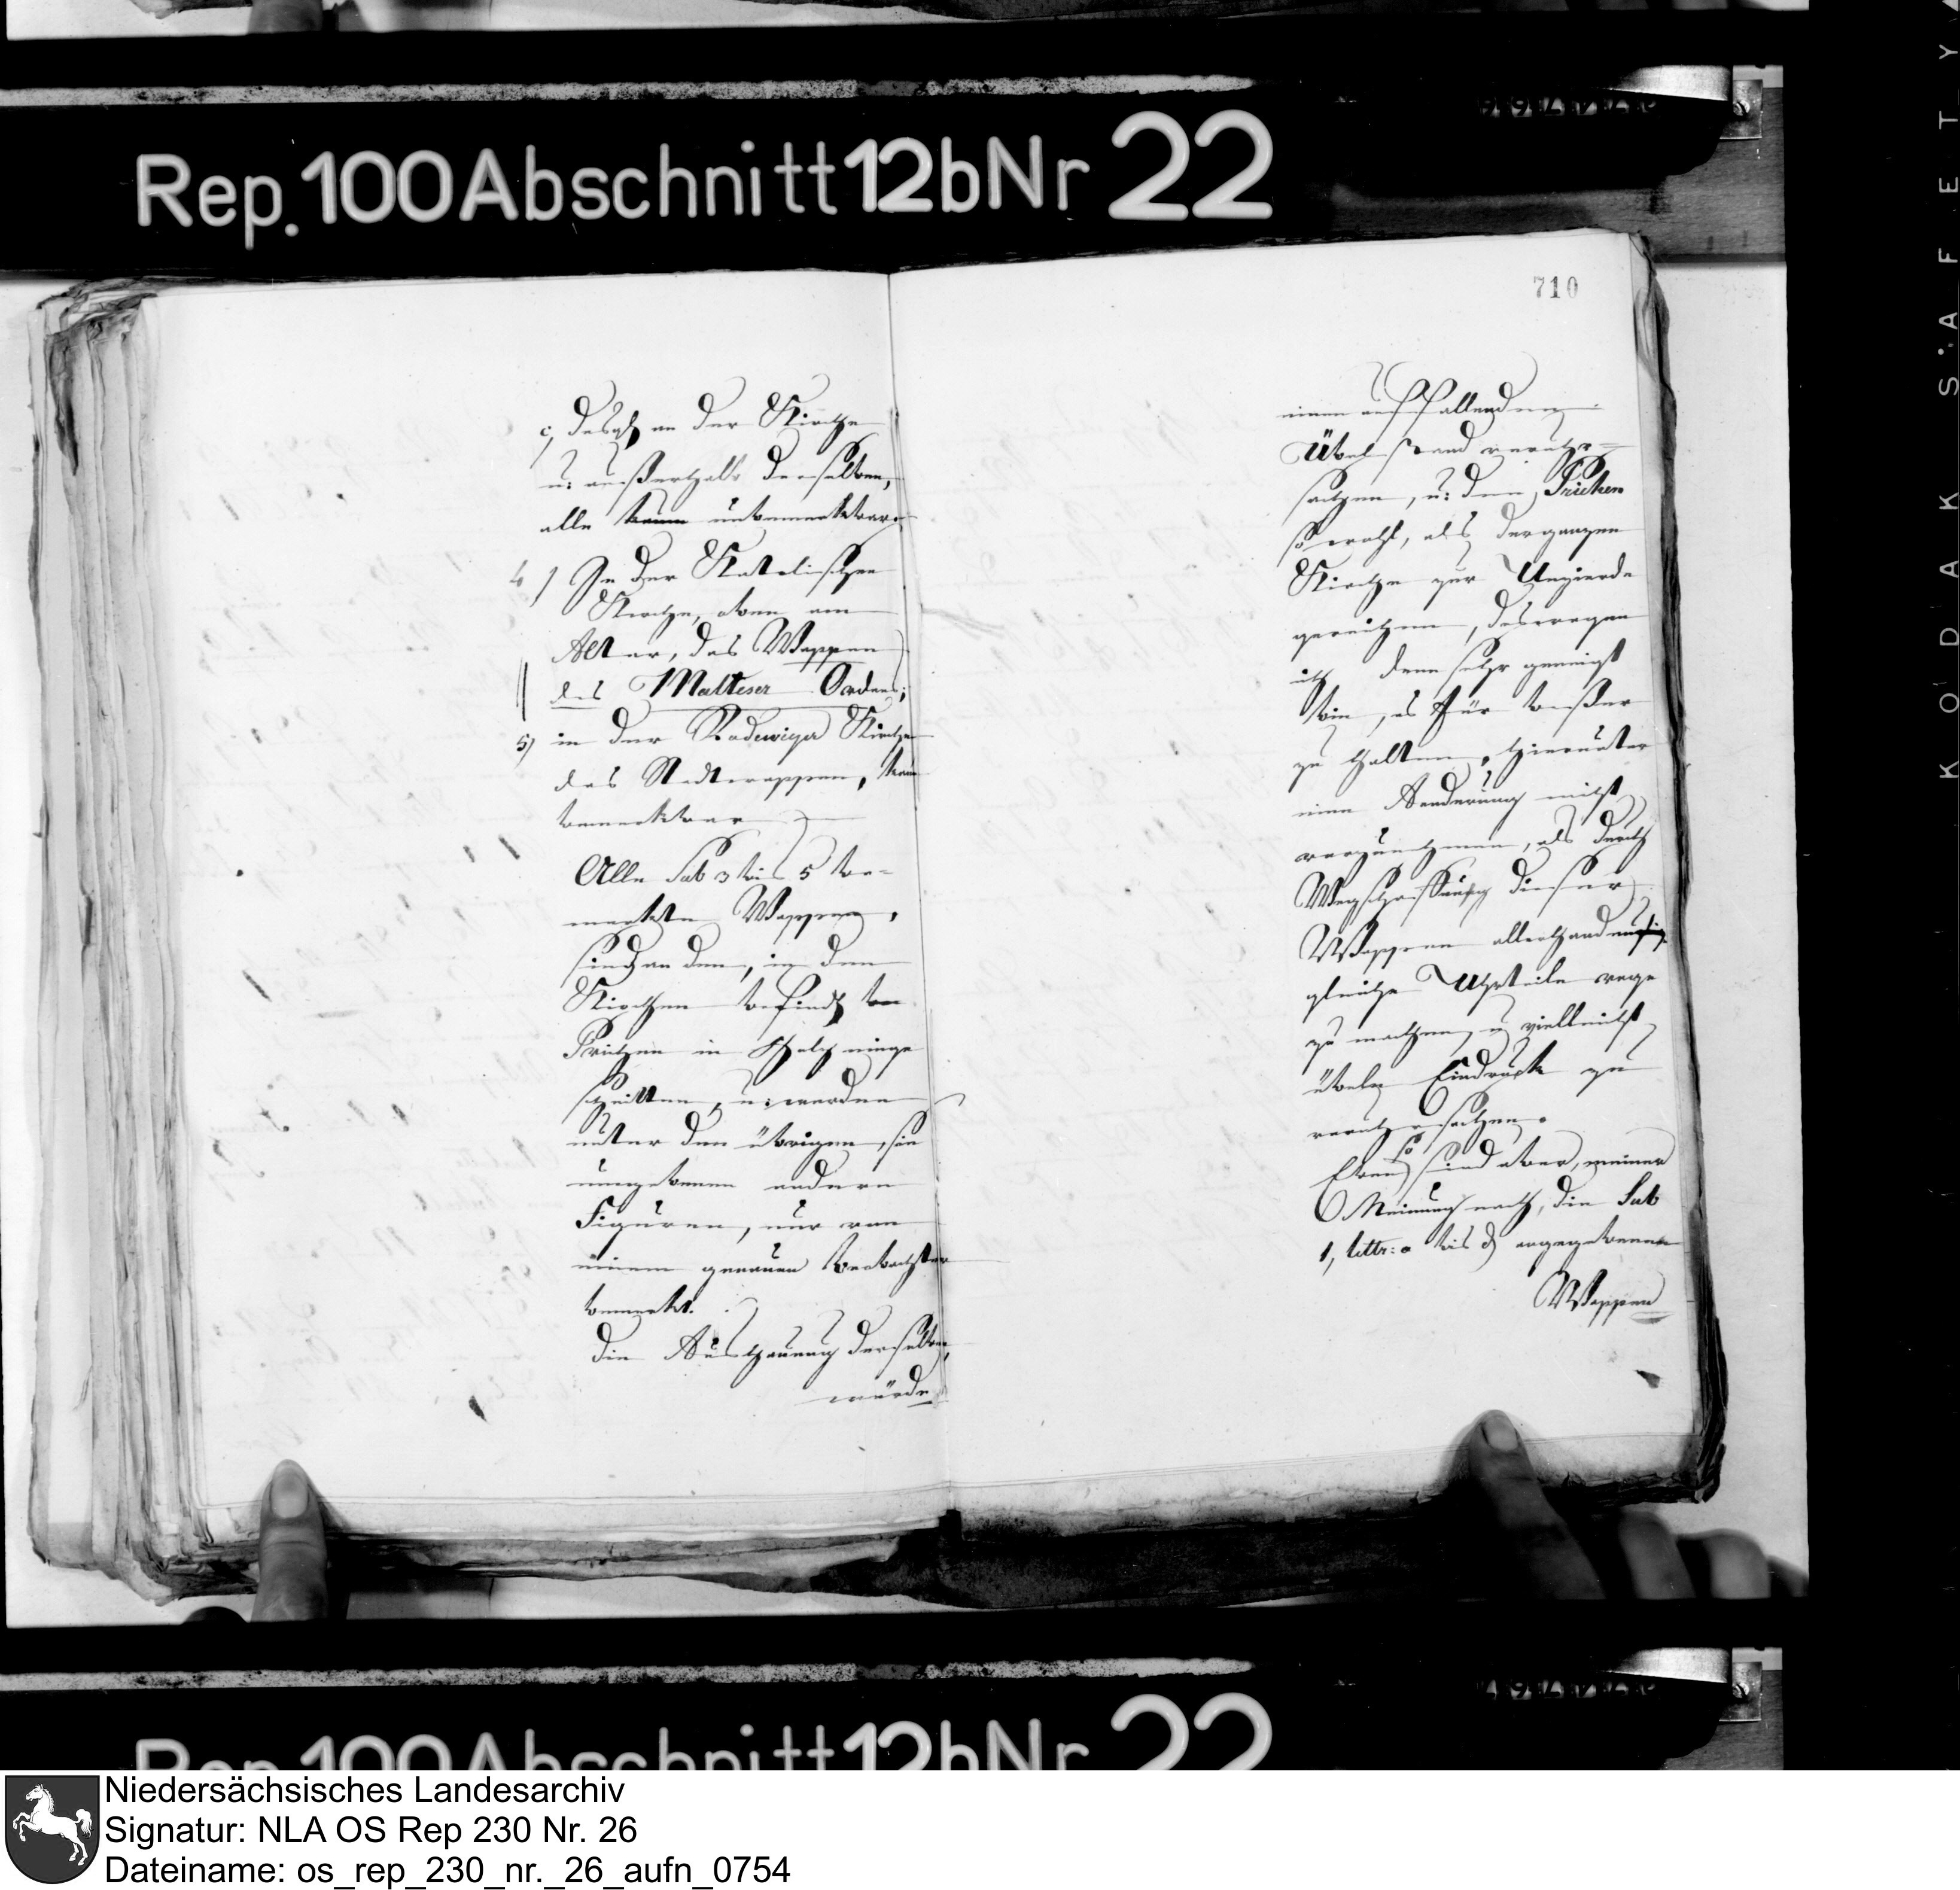 Rep. 100 Abschnitt 12b Nr 22
c, desgl. an der Kirche
u: außerhalb derselben,
alle kaum unbemerkbar.
4) In der Katolischen
Kirche, oben am
Altar, das Wappen
des Malteser Ordens;
5) in der Radewiger Kirche
das Stadtwappen, kaum
bemerkbar
Alle Sub 3 bis 5 be-
merkte Wappen,
sind an den, in den
Kirchen befindl.
Prichen in Holz einge
schnitten, u: werden
unter den übrigen, sie
umgebenen andern
Figuren, nur von
einem genauen Beobachter
bemerkt.
die Aushauung derselben,
würde
710
einen auffallenden
Übelstand veruhr-
sachen, u: den Prichen
so wohl, als der ganzen
Kirche zur Unzierde
gereichen, deswegen
ich denn sehr geneigt
bin, es für beßer
zu halten, hierunter
eine Aenderung nicht
vorzunehmen, als durch
Wegschaffung dieser
Wappen allerhand
gleiche Uhrteile rege
zu machen, u vielleicht
übele Eindrücke zu
veruhrsachen.
Eben so sind aber, meiner
Meinung nach, die Sub
1, littr: a bis d angegebenen
Wappen
KODAK SAFETY
Rep. 100 Abschnitt 12b Nr 22
Niedersächsisches Landesarchiv
Signatur: NLA OS Rep 230 Nr. 26
Dateiname: os_rep_230_nr._26_aufn_0754